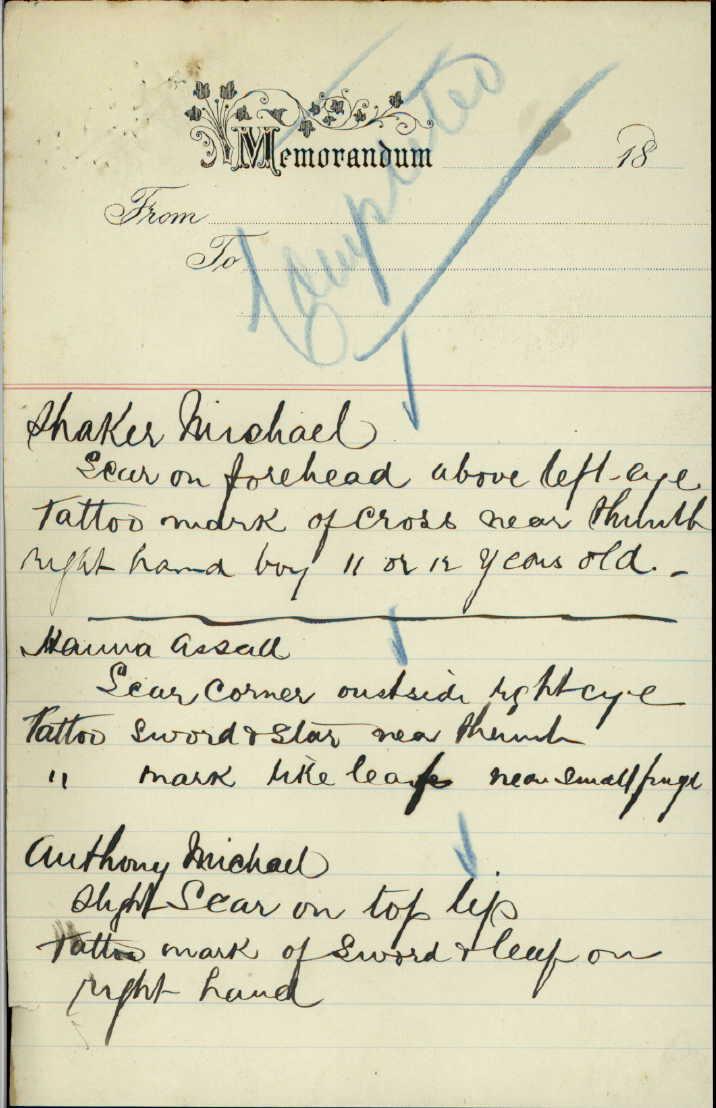 Completed
Memorandum 18
From
To
Shaker Michael
Scar on forehead above left eye
Tattoo mark of cross near thumb
right hand boy 11 or 12 years old. -
Hanna Assad
Scar corner outside right eye
Tattoo sword & star near thumb
" mark like leaf near small fingr
Anthony Michael
slight Scar on top lip
Tattoo mark of Sword & leaf on
right hand